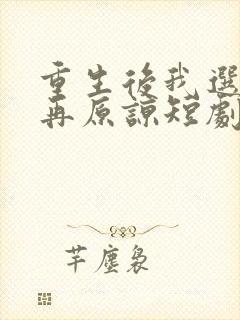 重生後我選
再原諒短劇
芊塵裊